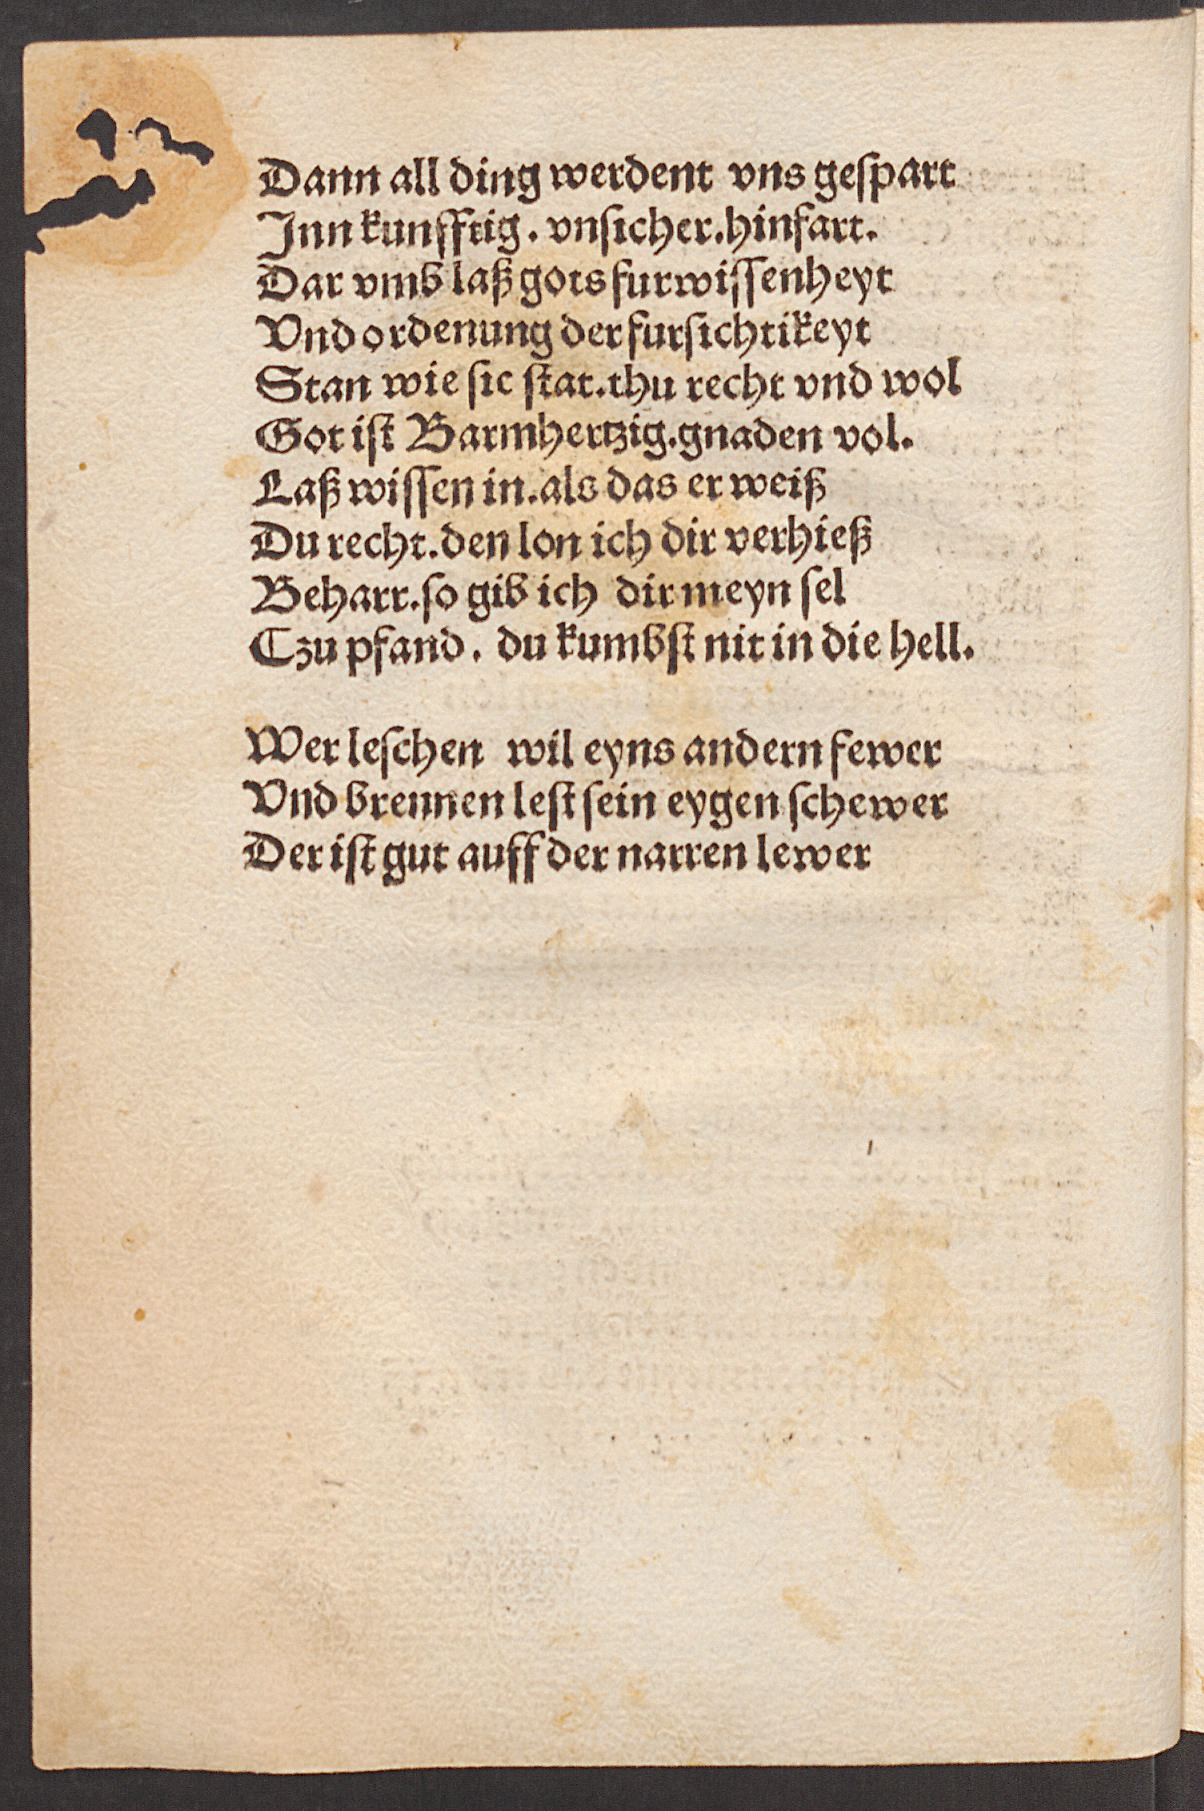 Dann all ding werdent vns geſpart
Inn kunfftig. vnſicher. hinfart.
Dar vmb laß gots furwiſſenheyt
Vnd ordenung der furſichtikeyt
Stan wie ſie ſtat. thu recht vnd wol
Got iſt Barmhertzig. gnaden vol.
Laß wiſſen in. als das er weiß
Du recht. den lon ich dir verhieß
Beharr. ſo gib ich dir meyn ſel
Czu pfand. du kumbſt nit in die hell.
Wer leſchen wil eyns andern fewer
Vnd brennen leſt ſein eygen ſchewer
Der iſt gut auff der narren lewer